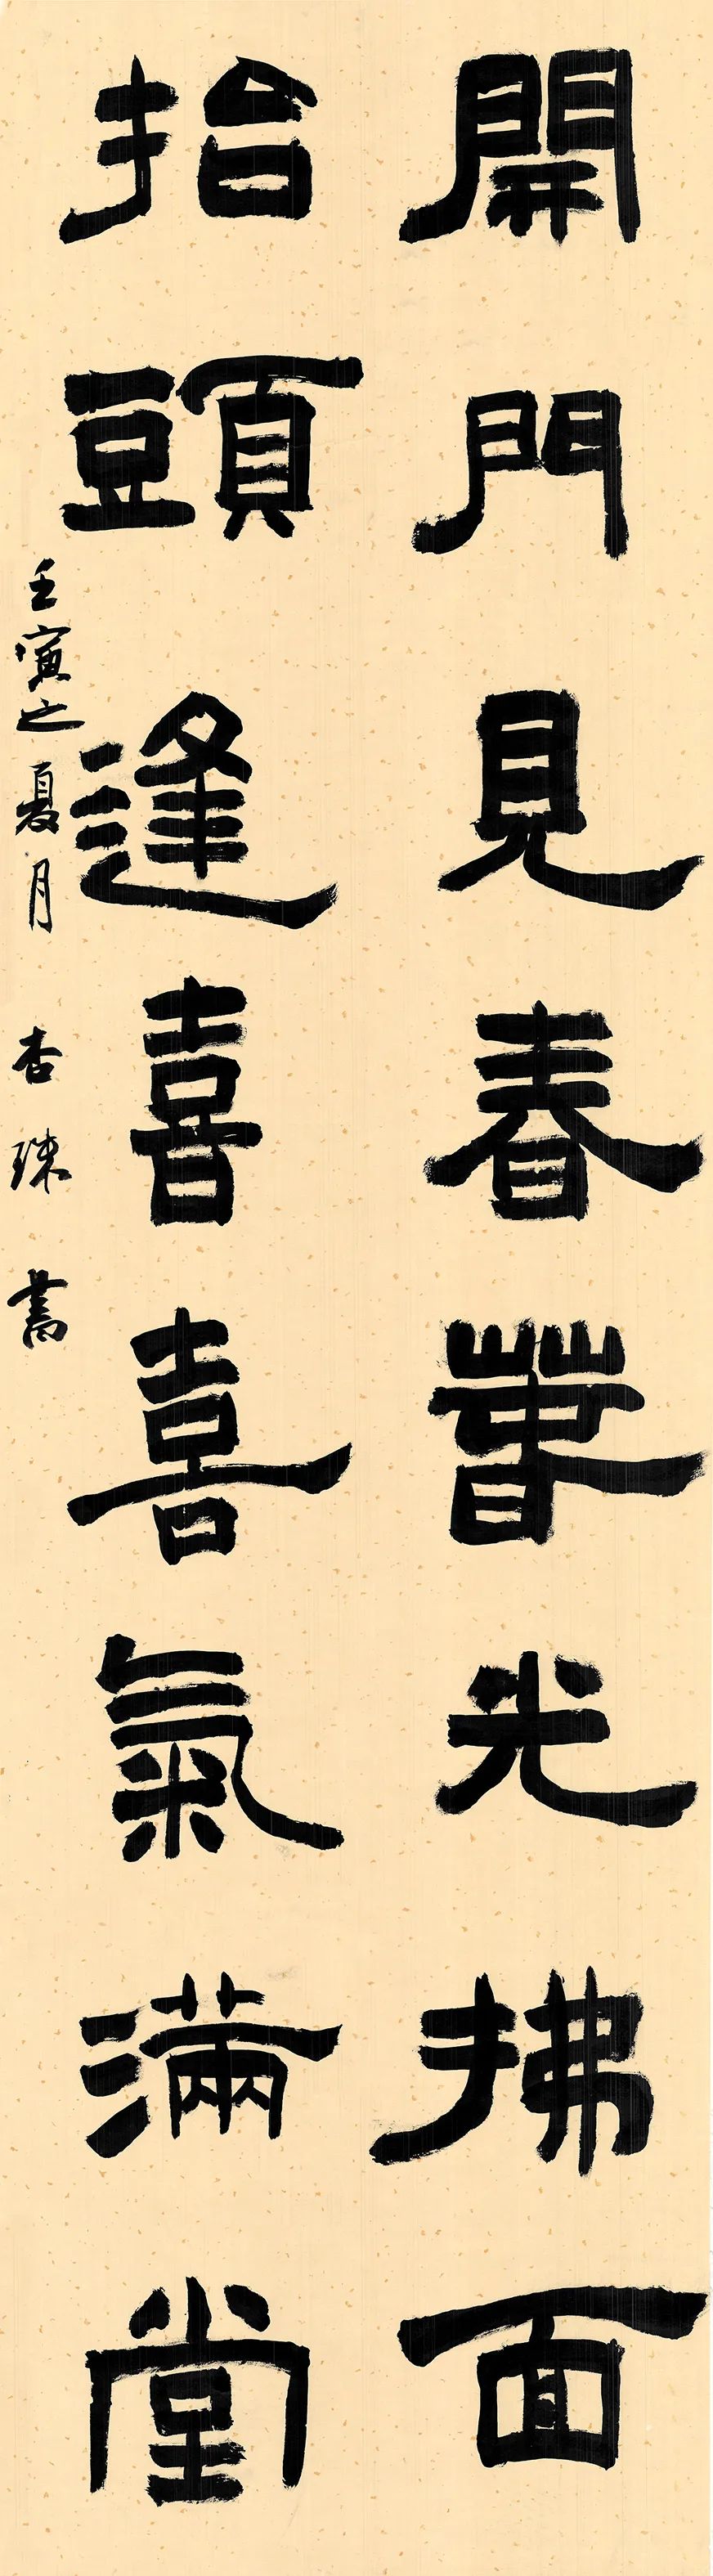 開門見春春光拂面
抬頭逢喜喜氣滿堂
壬寅之夏月 杏珠書